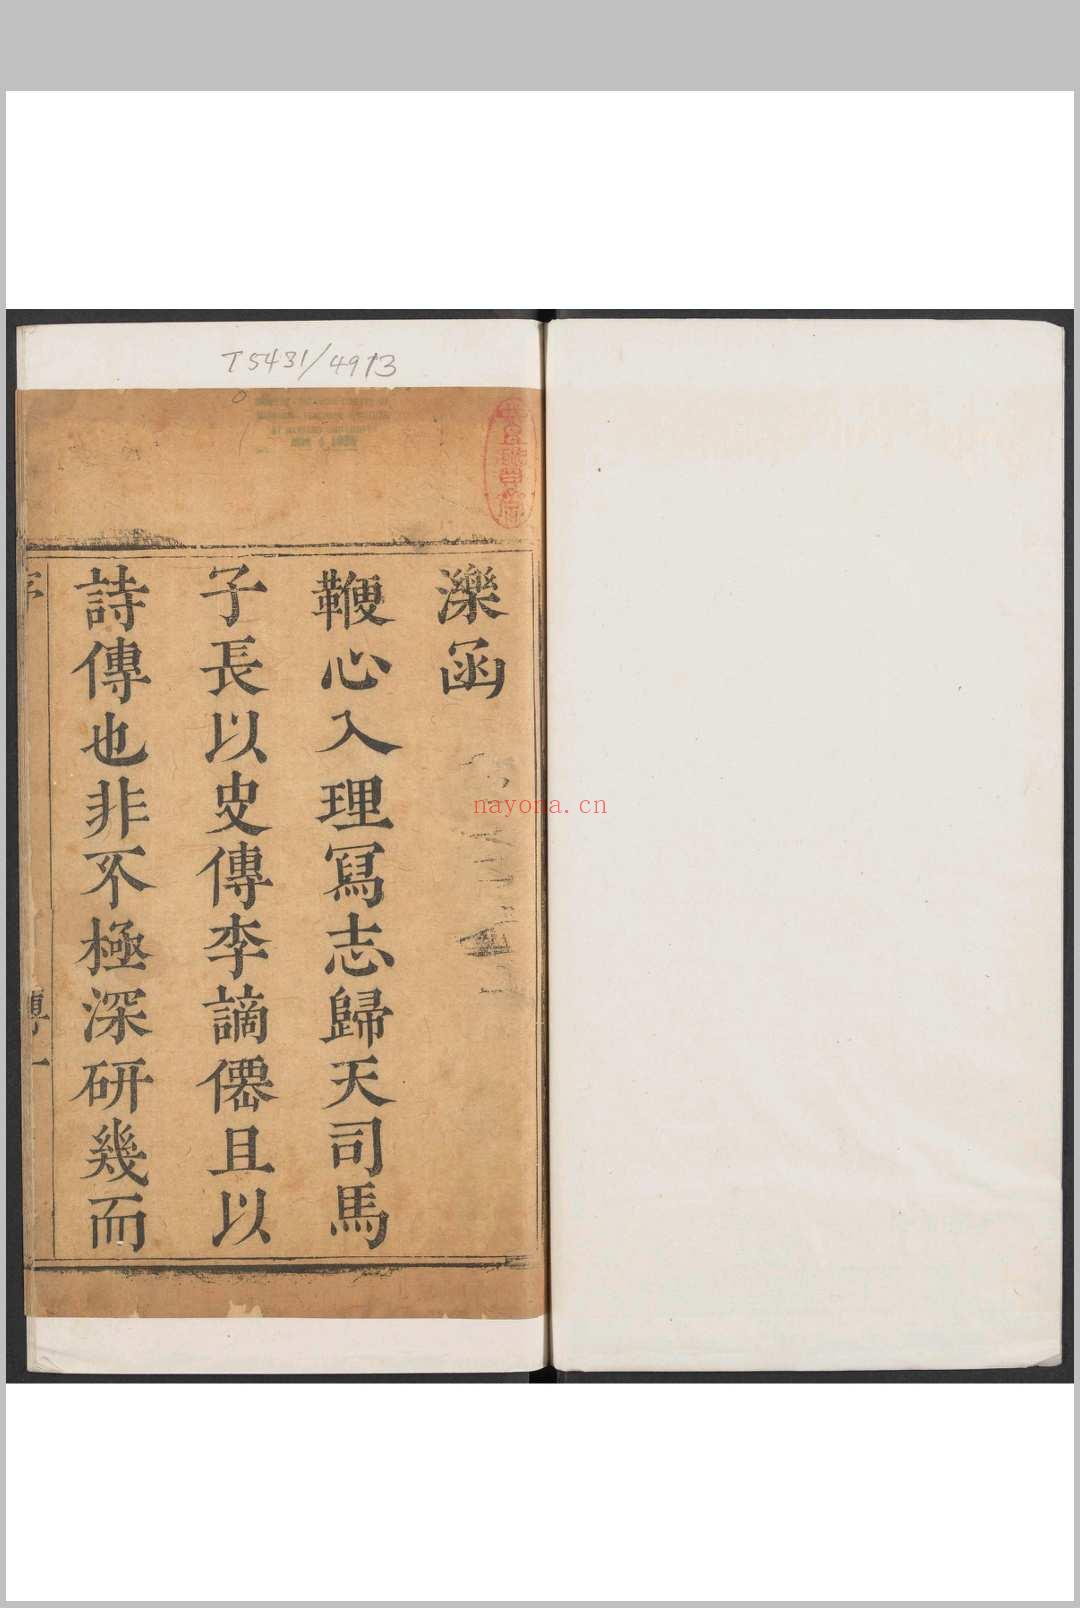 T5431/4913
濼函
鞭心入理冩志歸天司馬
子長以史傳李謫僊且以
詩傳也非不極深研幾而
傳一
nayona.cn